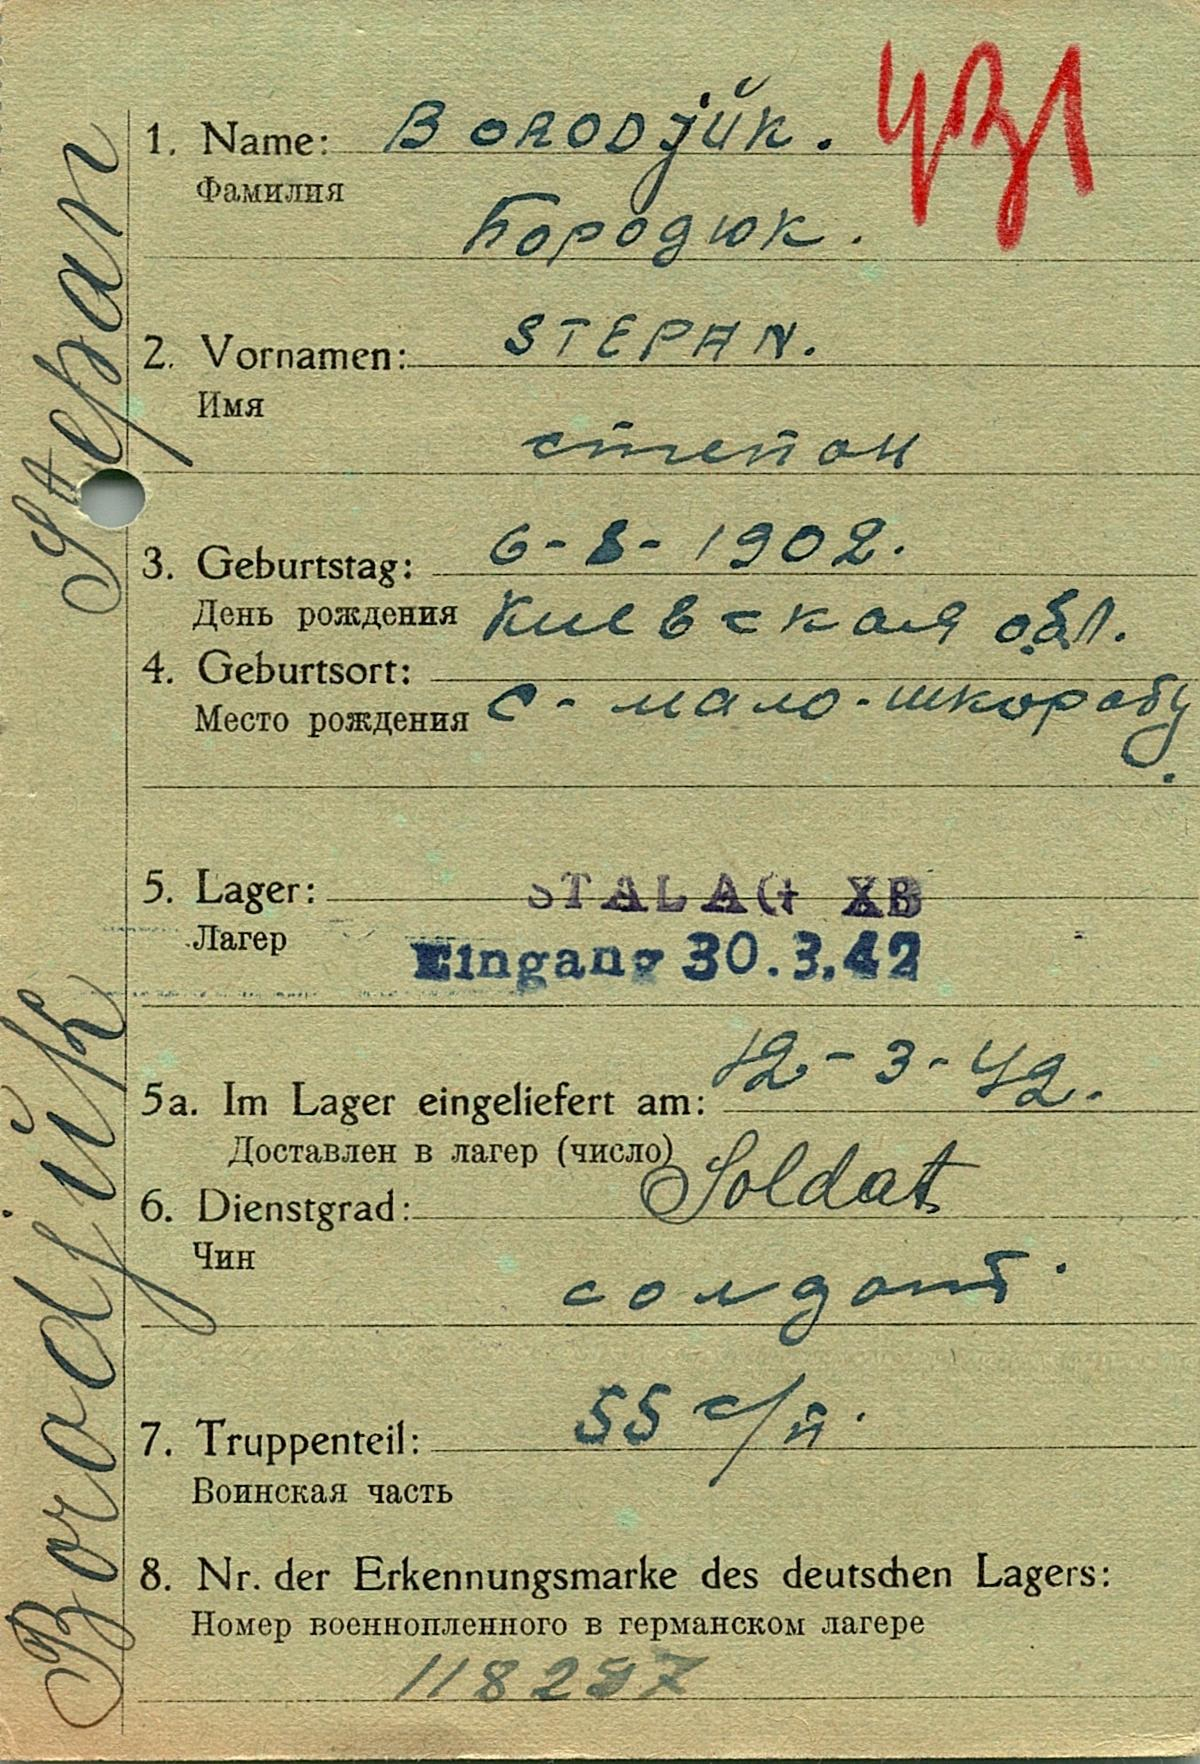 1. Name: BORODJŬK. 431
Фамилия
Бородюк.
2. Vornamen: STEPAN.
Имя
степан
3. Geburtstag: 6-8-1902.
День рождения Киевская обл.
4. Geburtsort:
Место рождения с-мало-шкорабу.
5. Lager: STALAG XB
Лагер Eingang 30.3.42
5a. Im Lager eingeliefert am: 12-3-42.
Доставлен в лагер (число)
6. Dienstgrad: Soldat
Чин
солдат.
7. Truppenteil: 55 с/п.
Воинская часть
8. Nr. der Erkennungsmarke des deutschen Lagers:
Номер военнопленного в германском лагере
118257
Borodjŭk Stepan